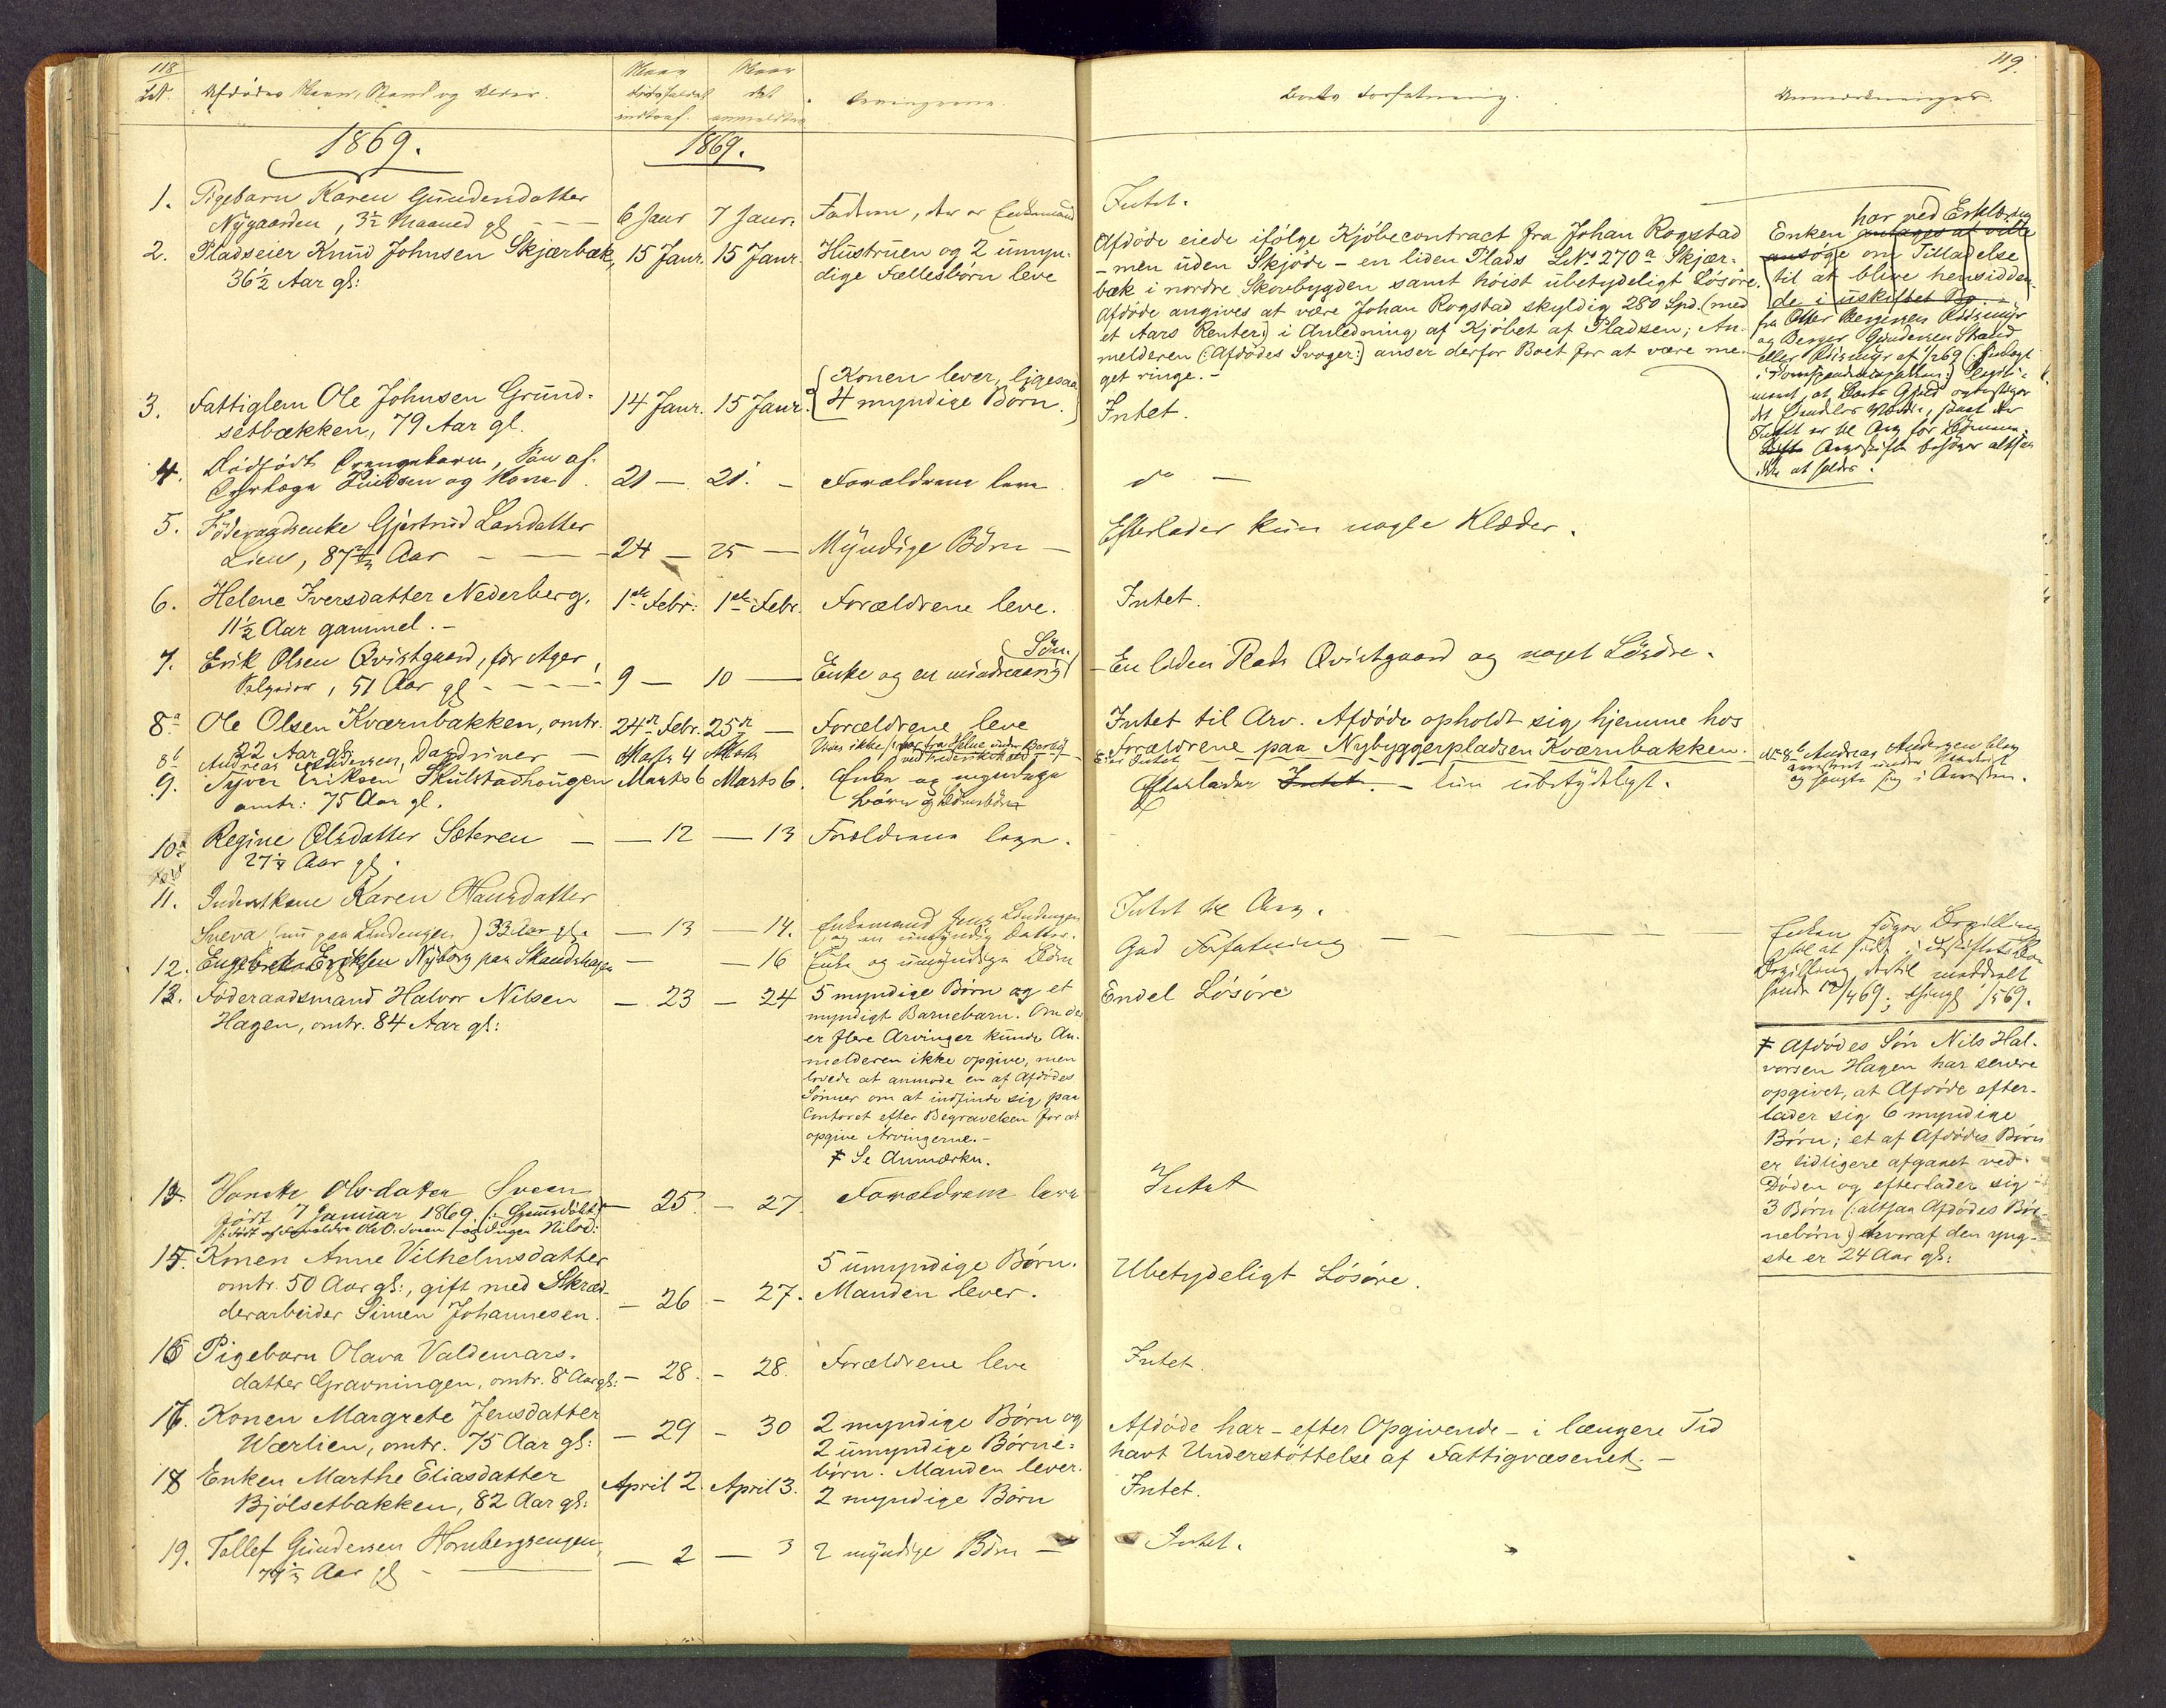 118
119.
Lb.
Afdødes Navn, Stand og Alder.
Naar Dødsfaldet indtraf.
Naar det anmeldtes
Arvingerne.
Boets Forfatning.
Anmærkninger.
1869.
1869.
1. Pigebarn Karen Gundersdatter
Nygaarden, 3½ Maaned gl
6 Janr
7 Janr.
Faderen, der er Enkemand
Intet.
2. Pladseier Knud Johnsen Skjærbæk,
36½ Aar gl:
15 Janr.
15 Janr.
Hustruen og 2 umyn-
dige Fællesbørn leve
Afdøde eiede ifølge Kjøbecontract fra Johan Rogstad
- men uden Skjøde - en liden Plads LNo 270a Skjær-
bæk i nordre Skovbygden samt høist ubetydeligt Løsøre.
Afdøde angives at være Johan Rogstad skyldig 280 Spd. (med
et Aars Renter) i Anledning af Kjøbet af Pladsen; An-
melderen (:Afdødes Svoger:) anser derfor Boet for at være me-
get ringe. -
har ved Erklæring
Enken antages at ville
ansøge om Tilladelse
til at blive hensidden-
de i uskiftet Bo. -
fra Otter Bergersen
og Berger Gundersen Strand
eller
at Boets Gjæld
Intet er til Arv for Børnene.
ikke at holde.
3. Fattiglem Ole Johnsen Grund-
setbækken, 79 Aar gl.
14 Janr.
15 Janr.
Konen lever, ligesaa
4 myndige Børn.
Intet.
4. Dødfødt Drengebarn, Søn af
Knudsen og Kone
21 -
21. -
Forældrene leve
do -
5. Føderaadsenke Gjertrud Larsdatter
Lien, 87 Aar - - -
24 -
25 -
Myndige Børn -
Efterlader kun nogle Klæder.
6. Helene Iversdatter Nederberg,
11½ Aar gammel. -
1ste Febr:
1ste Febr.
Forældrene leve.
Intet.
7. Erik Olsen Qvistgaard, før Ager,
51 Aar gl - - - -
9 -
10 -
Søn.
Enke og en mindreaarig
- En liden Plads Qvistgaard og noget Løsøre.
8a Ole Olsen Kværnbakken, omtr.
22 Aar gl:
24de Febr.
25de -
Forældrene leve
Intet til Arv. Afdøde opholdt sig hjemme hos
Forældrene paa Nybyggerpladsen Kværnbakken.
8b Andreas Andersen, Dagdriver -
Marts 4
Marts
Vides ikke
ved Frederikshald
Eier Intet
No 8b Andreas Andersen blev
arresteret under Marked
og hængte sig i Arresten.
9. Syver Eriksen Skulstadhaugen
omtr: 75 Aar gl.
Marts 6
Marts 6.
Enke og myndige
Børn og Børnebørn
Efterlader Intet. - kun ubetydeligt.
10. Regine Olsdatter Sæteren -
27¼ Aar gl.
- 12
- 13
Forældrene leve.
11. Inderstkone Karen Hansdatter
Sveva (nu paa Lundengen) 33 Aar gl.
- 13
- 14.
Enkemand Jens Lundengen
og en umyndig Datter.
Intet til Arv.
12. Engebret Eriksen Nyborg paa Strandhagen
-
- 16
Enke og umyndige Børn
God Forfatning - - -
Enken søger Bevilling
til at sidde i uskiftet Bo
Bevilling dertil meddelt
13. Føderaadsmand Halvor Nilsen
Hagen, omtr. 84 Aar gl:
- 23
- 24
5 myndige Børn og et
myndigt Barnebarn. Om der
er flere Arvinger kunde An-
melderen ikke opgive, men
lovede at anmode en af Afdødes
Sønner om at indfinde sig paa
Contoret efter Begravelsen for at
opgive Arvingerne. -
⌗ Se Anmærkn.
Endel Løsøre
⌗ Afdødes Søn Nils Hal-
vorsen Hagen har senere
opgivet, at Afdøde efter-
lader sig 6 myndige
Børn; et af Afdødes Børn
er tidligere afgaaet ved
Døden og efterlader sig
3 Børn (:altsaa Afdødes Bør-
nebørn) hvoraf den yng-
ste er 24 Aar gl:
14. Olsdatter Sveen
født 7 Januar 1869 (: hjemmedøbt)
født af Forældre Ole O. Sveen og Inger Nilsd:
- 25.
- 27.
Forældrene leve
Intet
15. Konen Anne Vilhelmsdatter
omtr. 50 Aar gl:, gift med Skræd-
derarbeider Simen Johannesen.
- 26
- 27.
5 umyndige Børn.
Manden lever.
Ubetydeligt Løsøre.
16 Pigebarn Olava Valdemars-
datter Gravningen, omtr. 8 Aar gl:
- 28.
- 28.
Forældrene leve
Intet.
17. Konen Margrete Jensdatter
Wærlien, omtr. 75 Aar gl:
- 29
- 30
2 myndige Børn og
2 umyndige Børne-
børn. Manden lever.
Afdøde har - efter Opgivende - i længere Tid
havt Understøttelse af Fattigvæsenet. -
18 Enken Marthe Eliasdatter
Bjølsetbakken, 82 Aar gl:
April 2.
April 3.
2 myndige Børn
Intet.
19. Tollef Gundersen Hornbergsengen,
79½ Aar gl -
- 2
- 3
2 myndige Børn -
Intet.